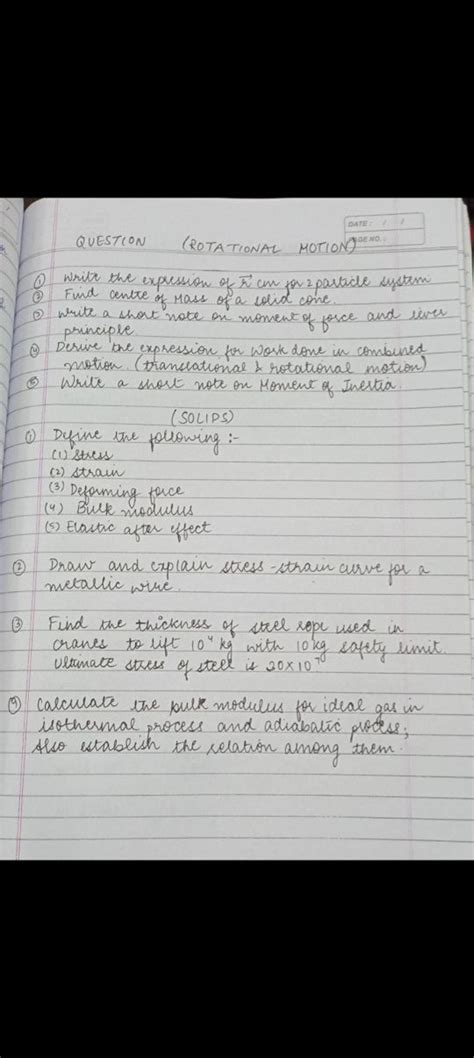 DATE: / /
PAGE NO.:
QUESTION (ROTATIONAL MOTION)
① Write the expression of r⃗ cm for 2 particle system
② Find centre of Mass of a solid cone.
③ Write a short note on moment of force and lever
principle
④ Derive the expression for work done in combined
motion. (translational & rotational motion)
⑤ Write a short note on Moment of Inertia.
(SOLIDS)
① Define the following :-
(1) Stress
(2) Strain
(3) Deforming force
(4) Bulk modulus
(5) Elastic after effect
② Draw and explain stress-strain curve for a
metallic wire.
③ Find the thickness of steel rope used in
cranes to lift 10⁴ kg with 10 kg safety limit.
Ultimate stress of steel is 20×10⁷
④ Calculate the bulk modulus for ideal gas in
isothermal process and adiabatic process;
Also establish the relation among them.